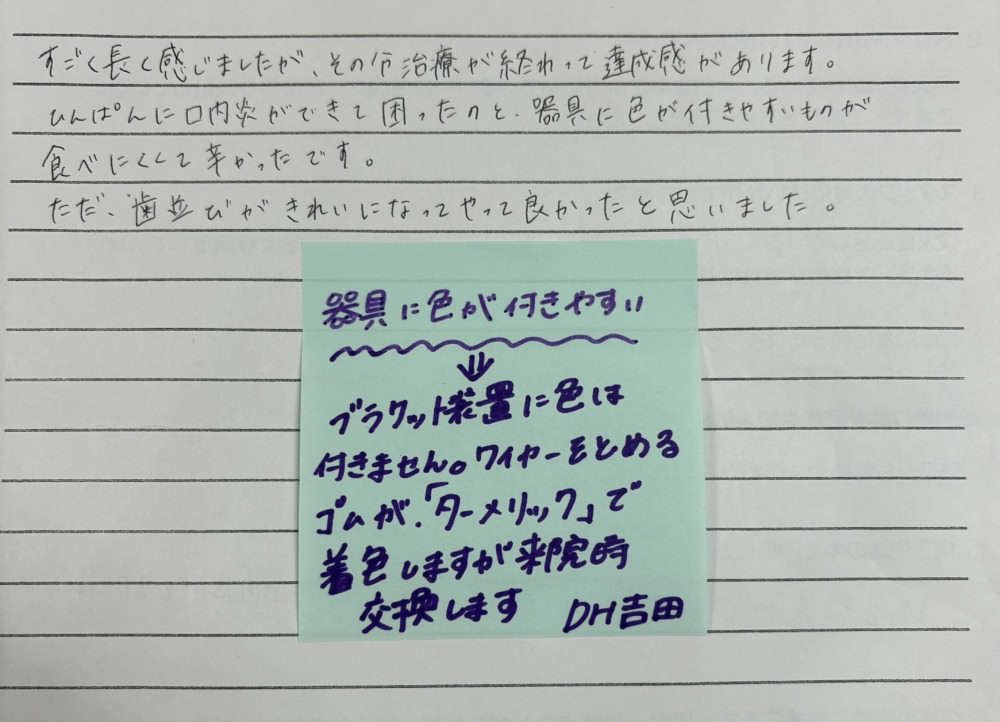 すごく長く感じましたが、その分治療が終わって達成感があります。
ひんぱんに口内炎ができて困ったのと、器具に色が付きやすいものが
食べにくくて辛かったです。
ただ、歯並びがきれいになってやって良かったと思いました。
器具に色が付きやすい
⇓
ブラケット装置に色は
付きません。ワイヤーをとめる
ゴムが、「ターメリック」で
着色しますが来院時
交換します DH吉田